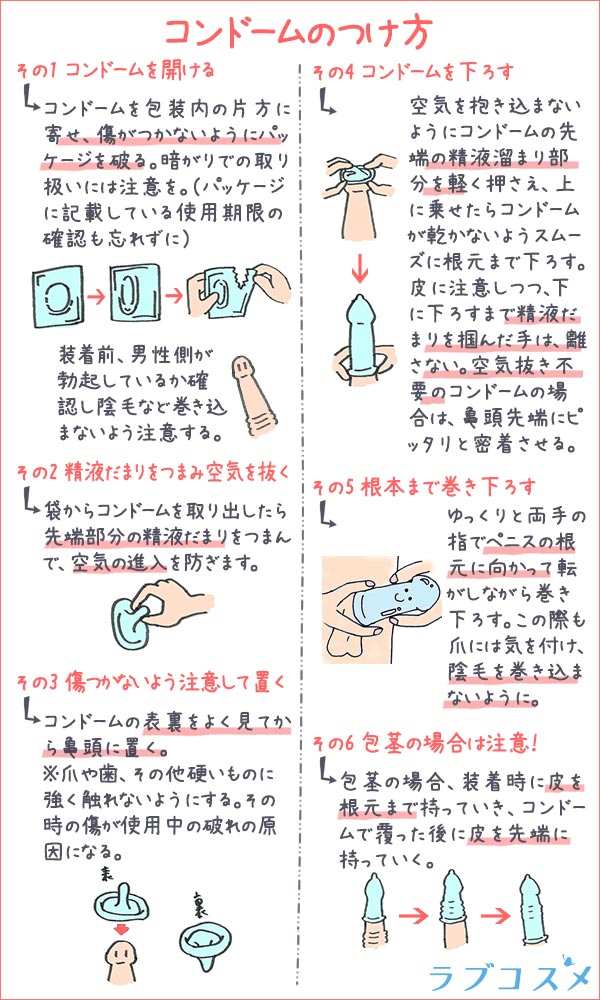 コンドームのつけ方
その1 コンドームを開ける
コンドームを包装内の片方に
寄せ、傷がつかないようにパッ
ケージを破る。暗がりでの取り
扱いには注意を。(パッケージ
に記載している使用期限の
確認も忘れずに)
装着前、男性側が
勃起しているか確
認し陰毛など巻き込
まないよう注意する。
その2 精液だまりをつまみ空気を抜く
袋からコンドームを取り出したら
先端部分の精液だまりをつまん
で、空気の進入を防ぎます。
その3 傷つかないよう注意して置く
コンドームの表裏をよく見てか
ら亀頭に置く。
※爪や歯、その他硬いものに
強く触れないようにする。その
時の傷が使用中の破れの原
因になる。
表
裏
その4 コンドームを下ろす
空気を抱き込まない
ようにコンドームの先
端の精液溜まり部
分を軽く押さえ、上
に乗せたらコンドーム
が乾かないようスムー
ズに根元まで下ろす。
皮に注意しつつ、下
に下ろすまで精液だ
まりを掴んだ手は、離
さない。空気抜き不
要のコンドームの場
合は、亀頭先端にピ
ッタリと密着させる。
その5 根本まで巻き下ろす
ゆっくりと両手の
指でペニスの根
元に向かって転
がしながら巻き
下ろす。この際も
爪には気を付け、
陰毛を巻き込ま
ないように。
その6 包茎の場合は注意!
包茎の場合、装着時に皮を
根元まで持っていき、コンドー
ムで覆った後に皮を先端に
持っていく。
ラブコスメ